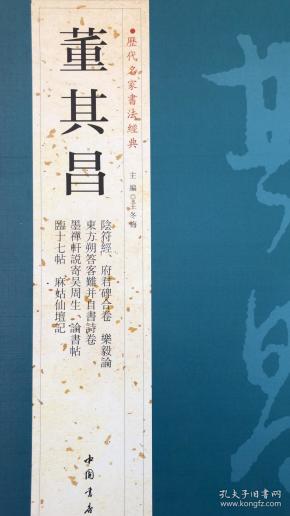 歷代名家書法經典
主編◎王冬梅
董其昌
陰符經、府君碑合卷 樂毅論
東方朔答客難并自書詩卷
墨禪軒説寄吴周生、論書帖
臨十七帖 麻姑仙壇記
中国書店
孔夫子旧书网